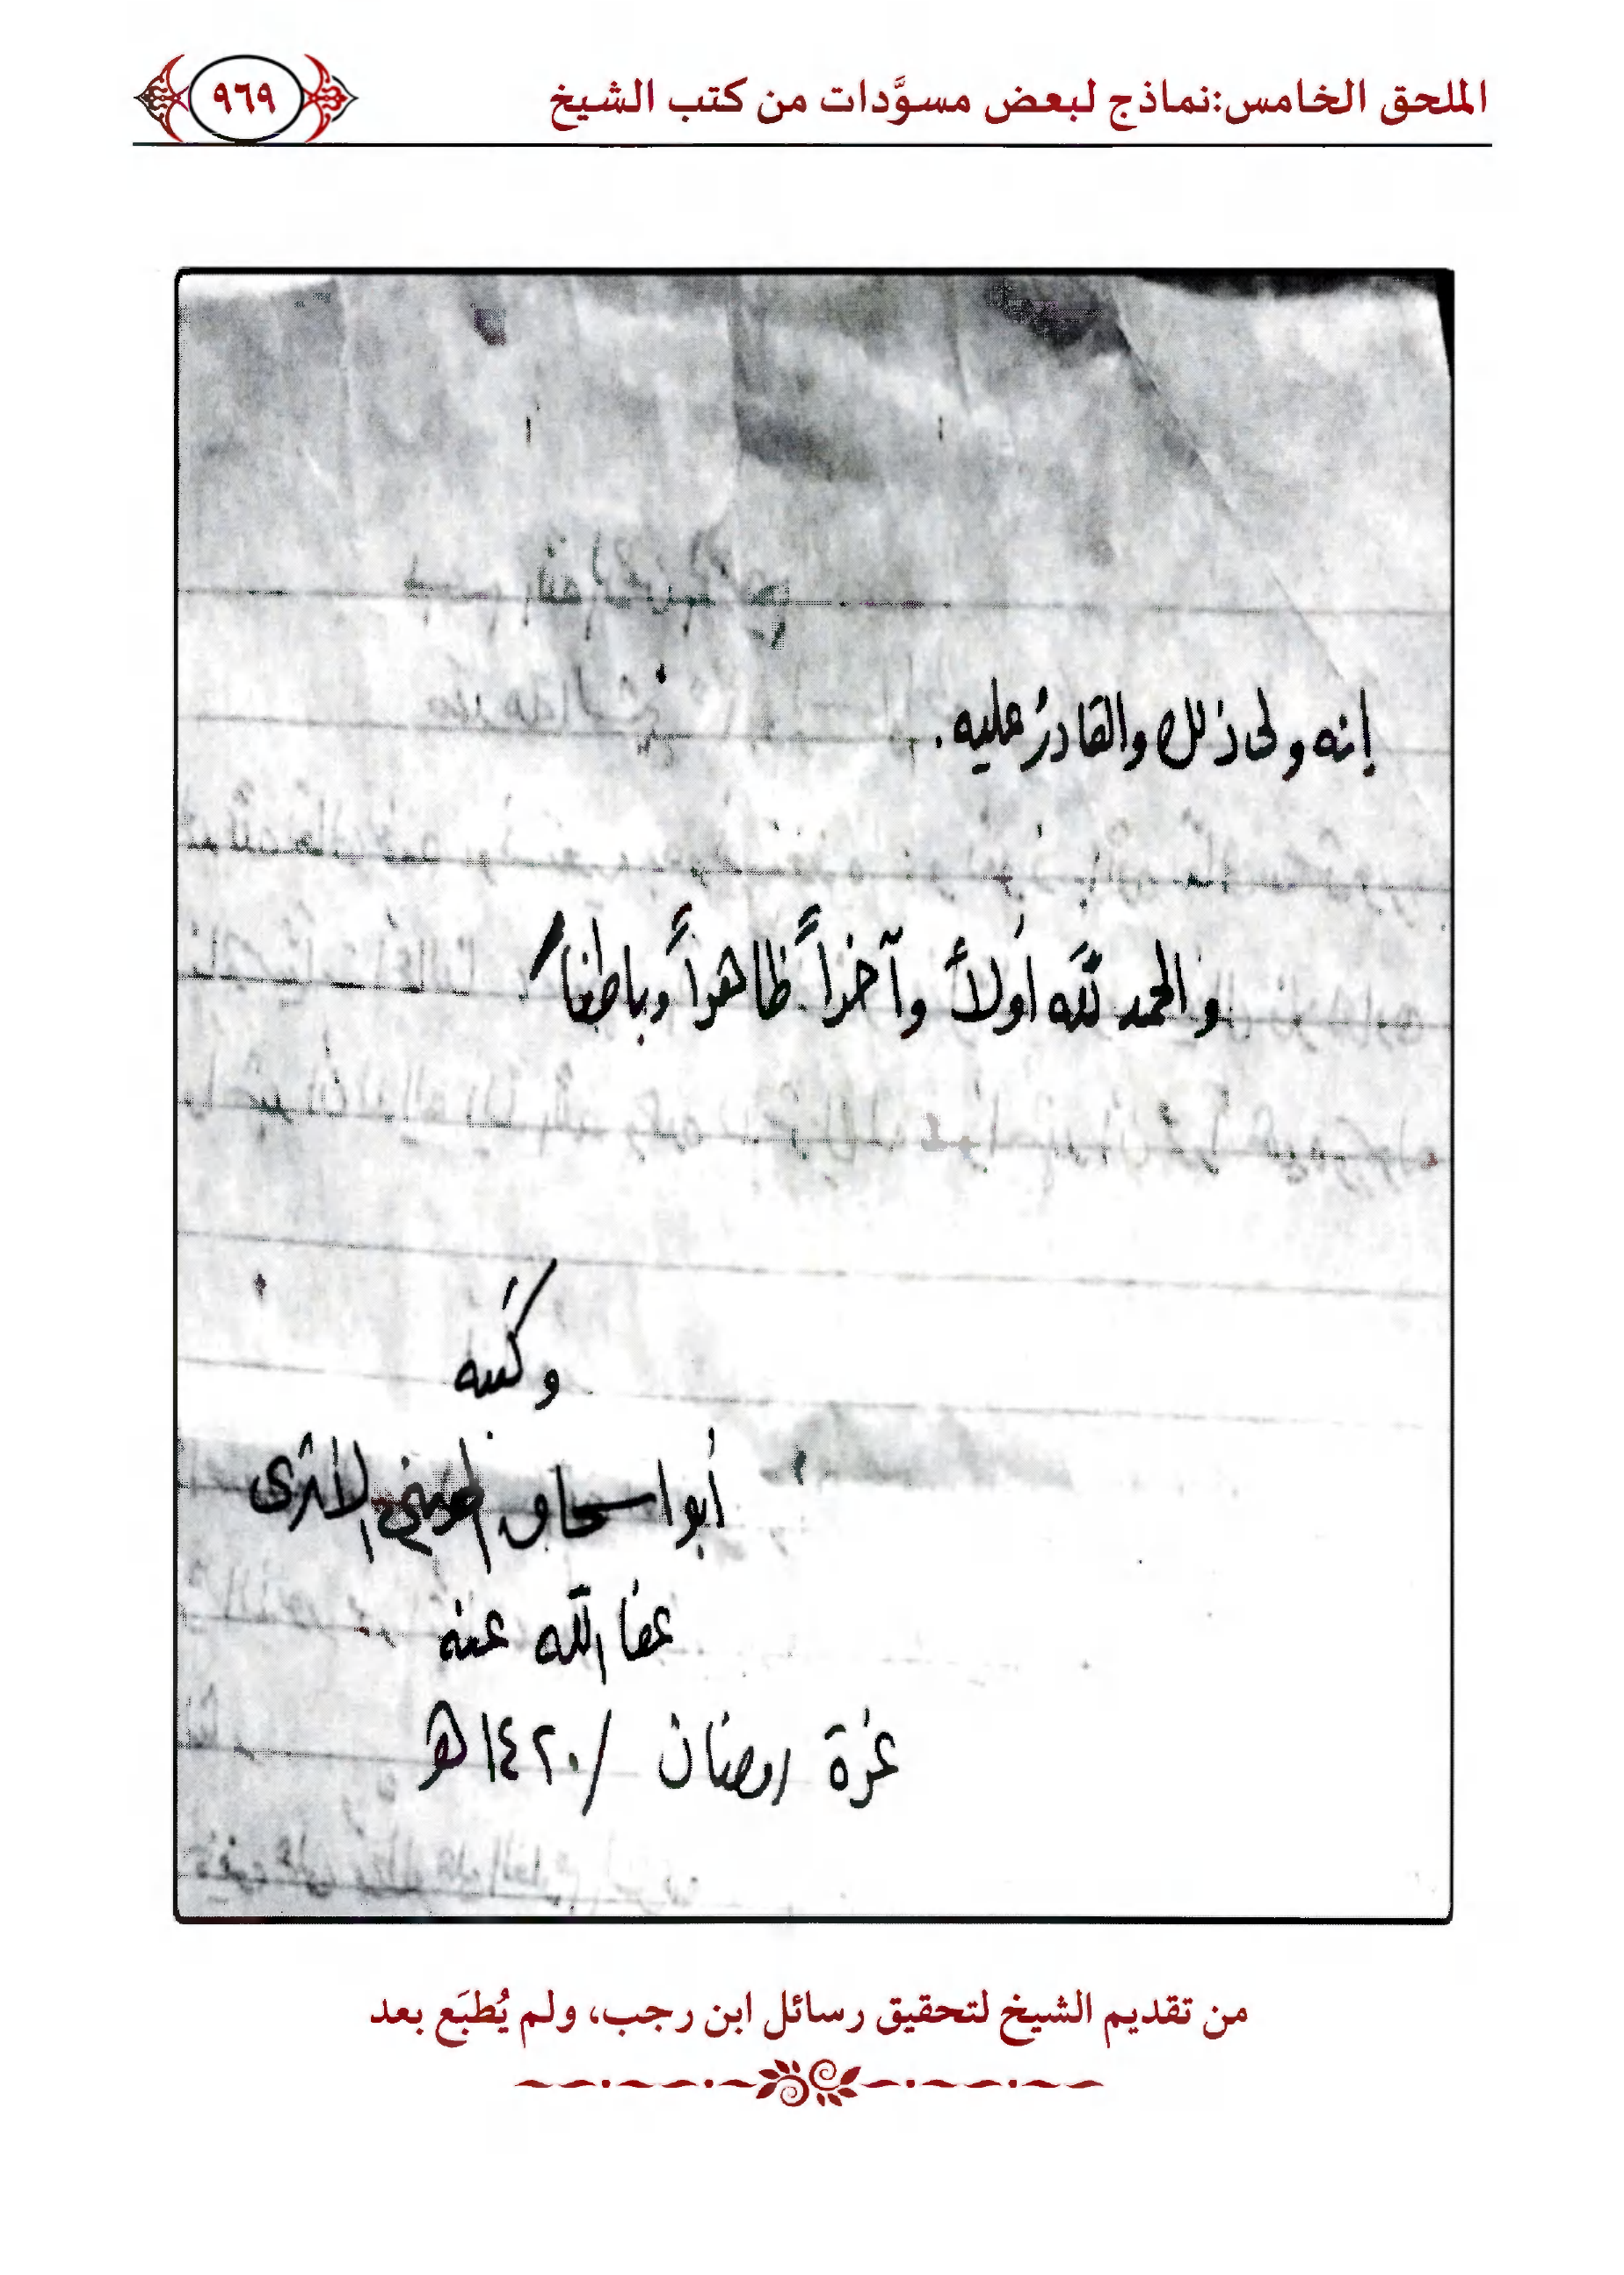 الملحق الخامس:نماذج لبعض مسوَّدات من كتب الشيخ
٩٦٩
إنه ولى ذلك والقادرُ عليه.
والحمد لله أولاً وآخراً ظاهراً وباطناً.
وكتبه
أبو اسحاق الحوينى الأثرى
عفا الله عنه
غرة رمضان / ١٤٢٠هـ
من تقديم الشيخ لتحقيق رسائل ابن رجب، ولم يُطبَع بعد